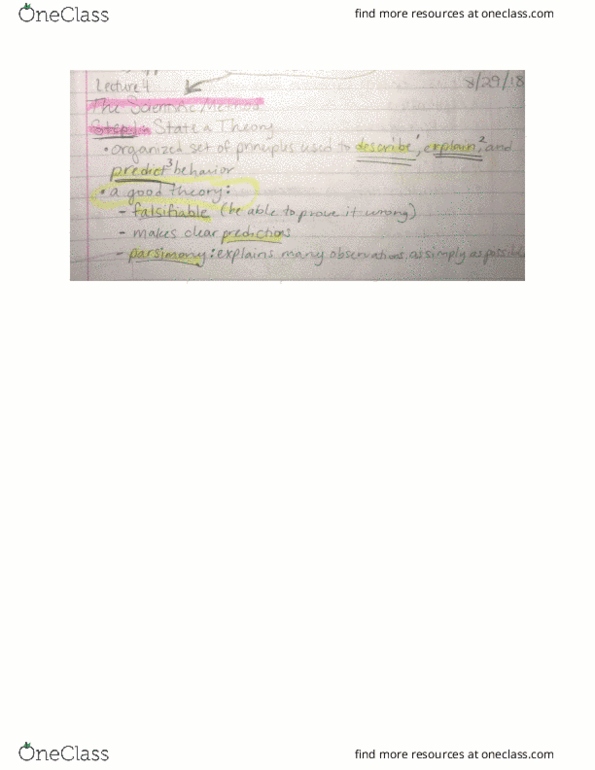 OneClass
find more resources at oneclass.com
Lecture 4
8/29/18
The Scientific Method
Step 1: State a Theory
• organized set of principles used to describe¹, explain,² and
predict³ behavior
• a good theory:
- falsifiable (be able to prove it wrong)
- makes clear predictions
- parsimony: explains many observations as simply as possible
OneClass
find more resources at oneclass.com